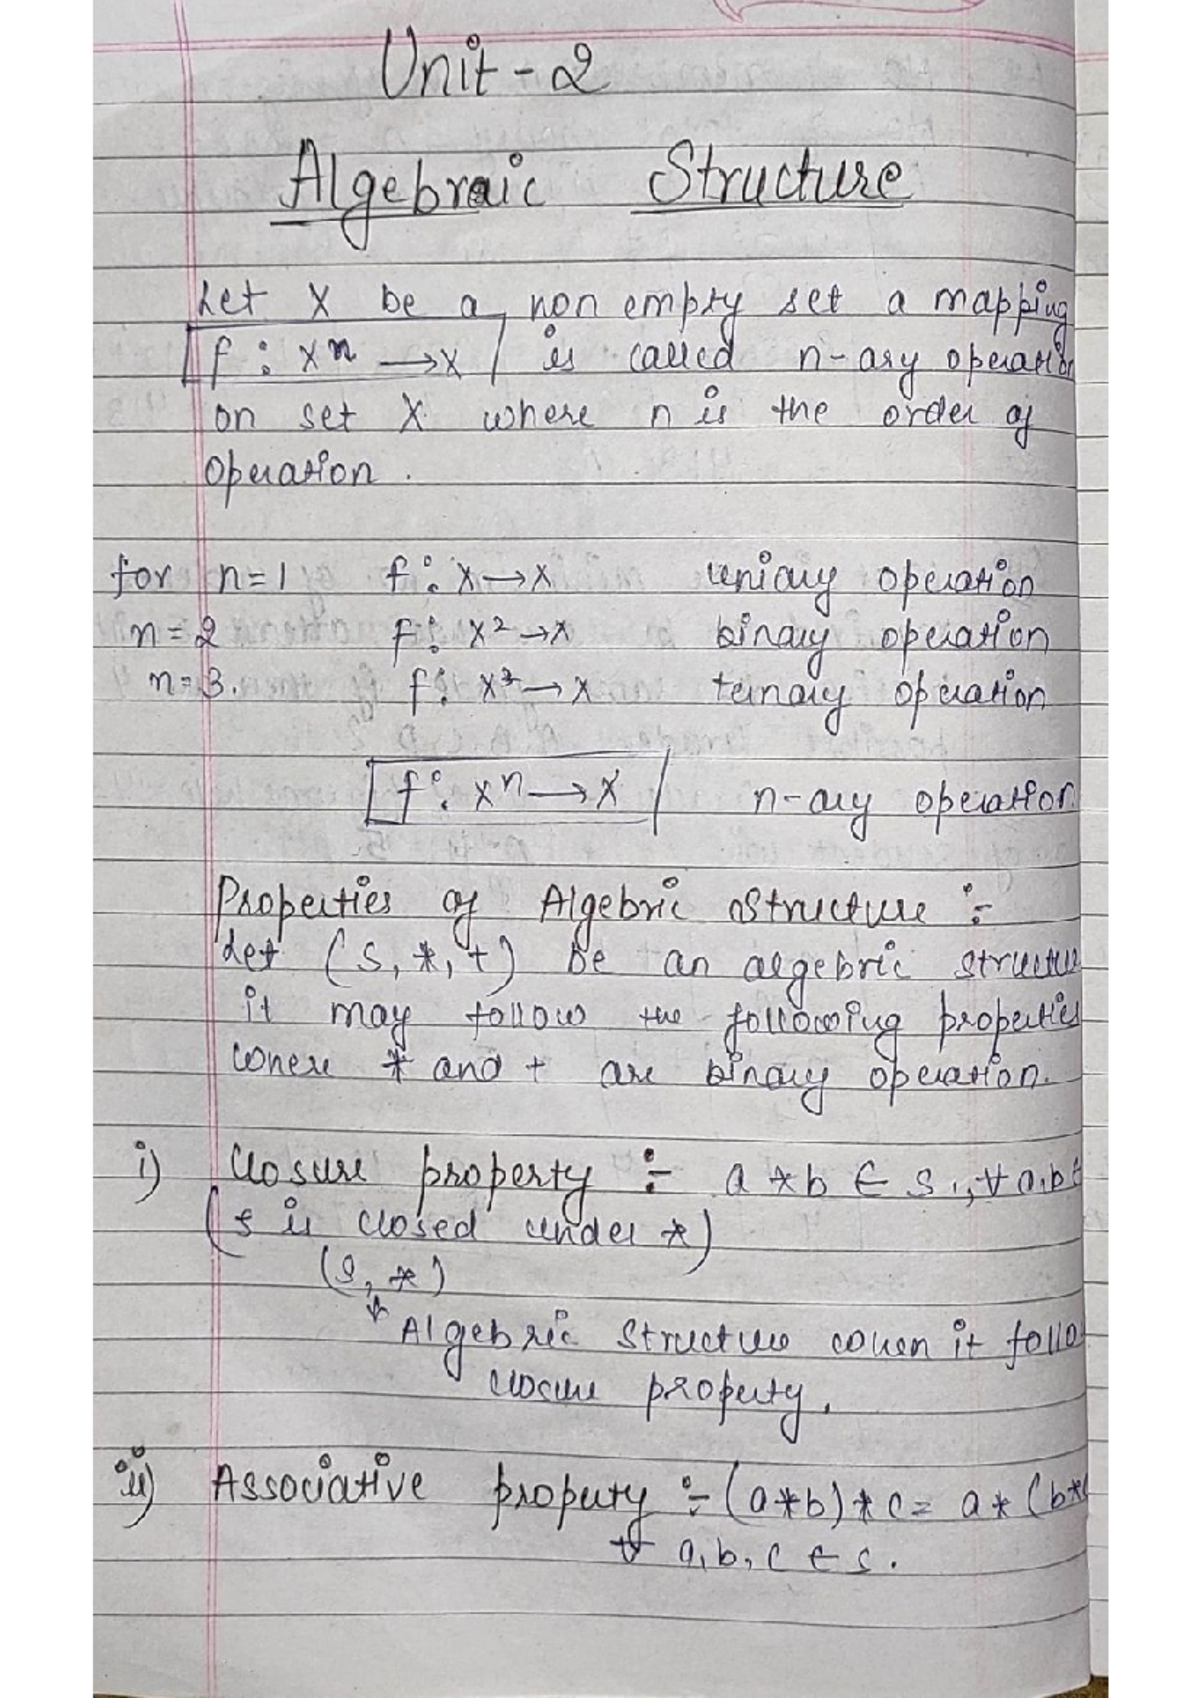 Unit - 2
Algebraic Structure
Let X be a non empty set a mapping
f : xⁿ → x is called n-ary operation
on set X where n is the order of
operation.
for n=1 f : x → x uniary operation
n = 2 f : x² → x binary operation
n = 3. f : x³ → x ternary operation
f : xⁿ → x n-ary operation
Properties of Algebric Structure :-
Let (S, *, +) be an algebric structure
it may follow the following properties
where * and + are binary operation.
i) Closure property :- a * b ∈ S ., ∀ a,b ∈
(S is closed under *)
(S, *)
↓ Algebric structure when it follo
closure property.
ii) Associative property :- (a*b)*c = a*(b*c
∀ a,b,c ∈ S.